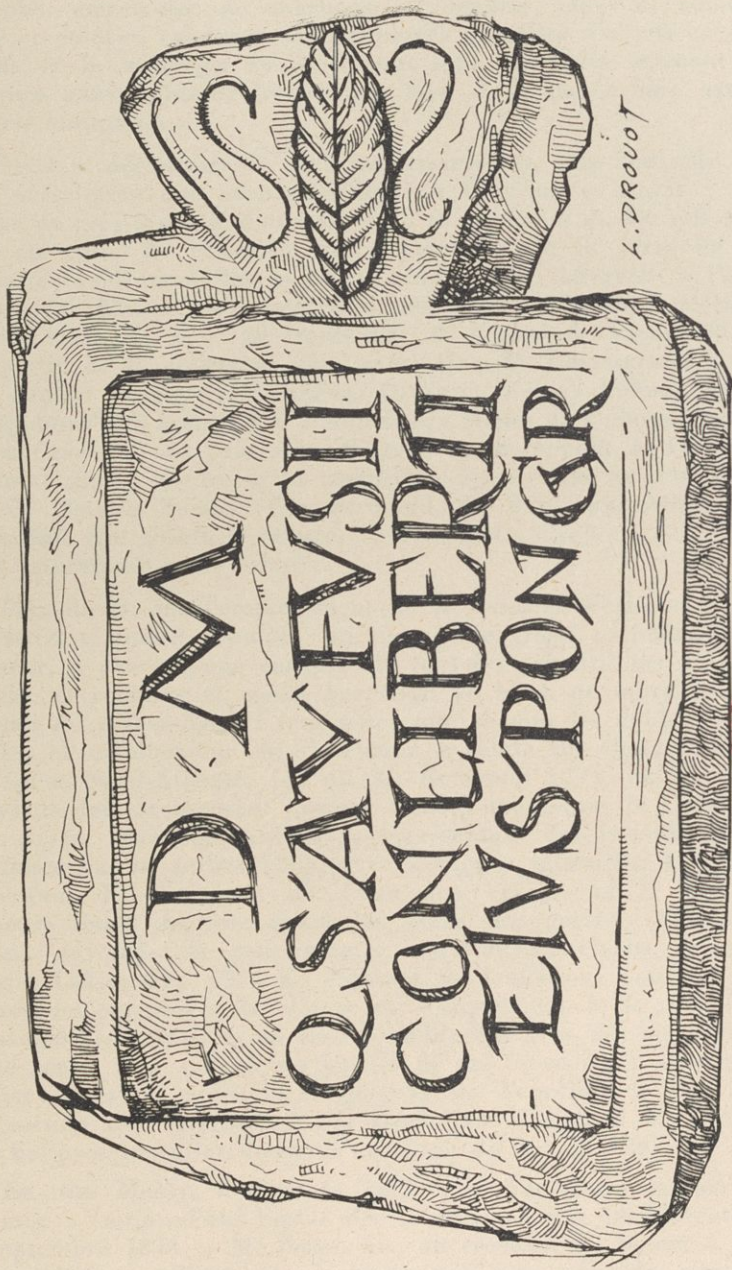 D M
QSAVFVSII
CONLIBERTI
EIVS PON GR
S S
L. DROUOT